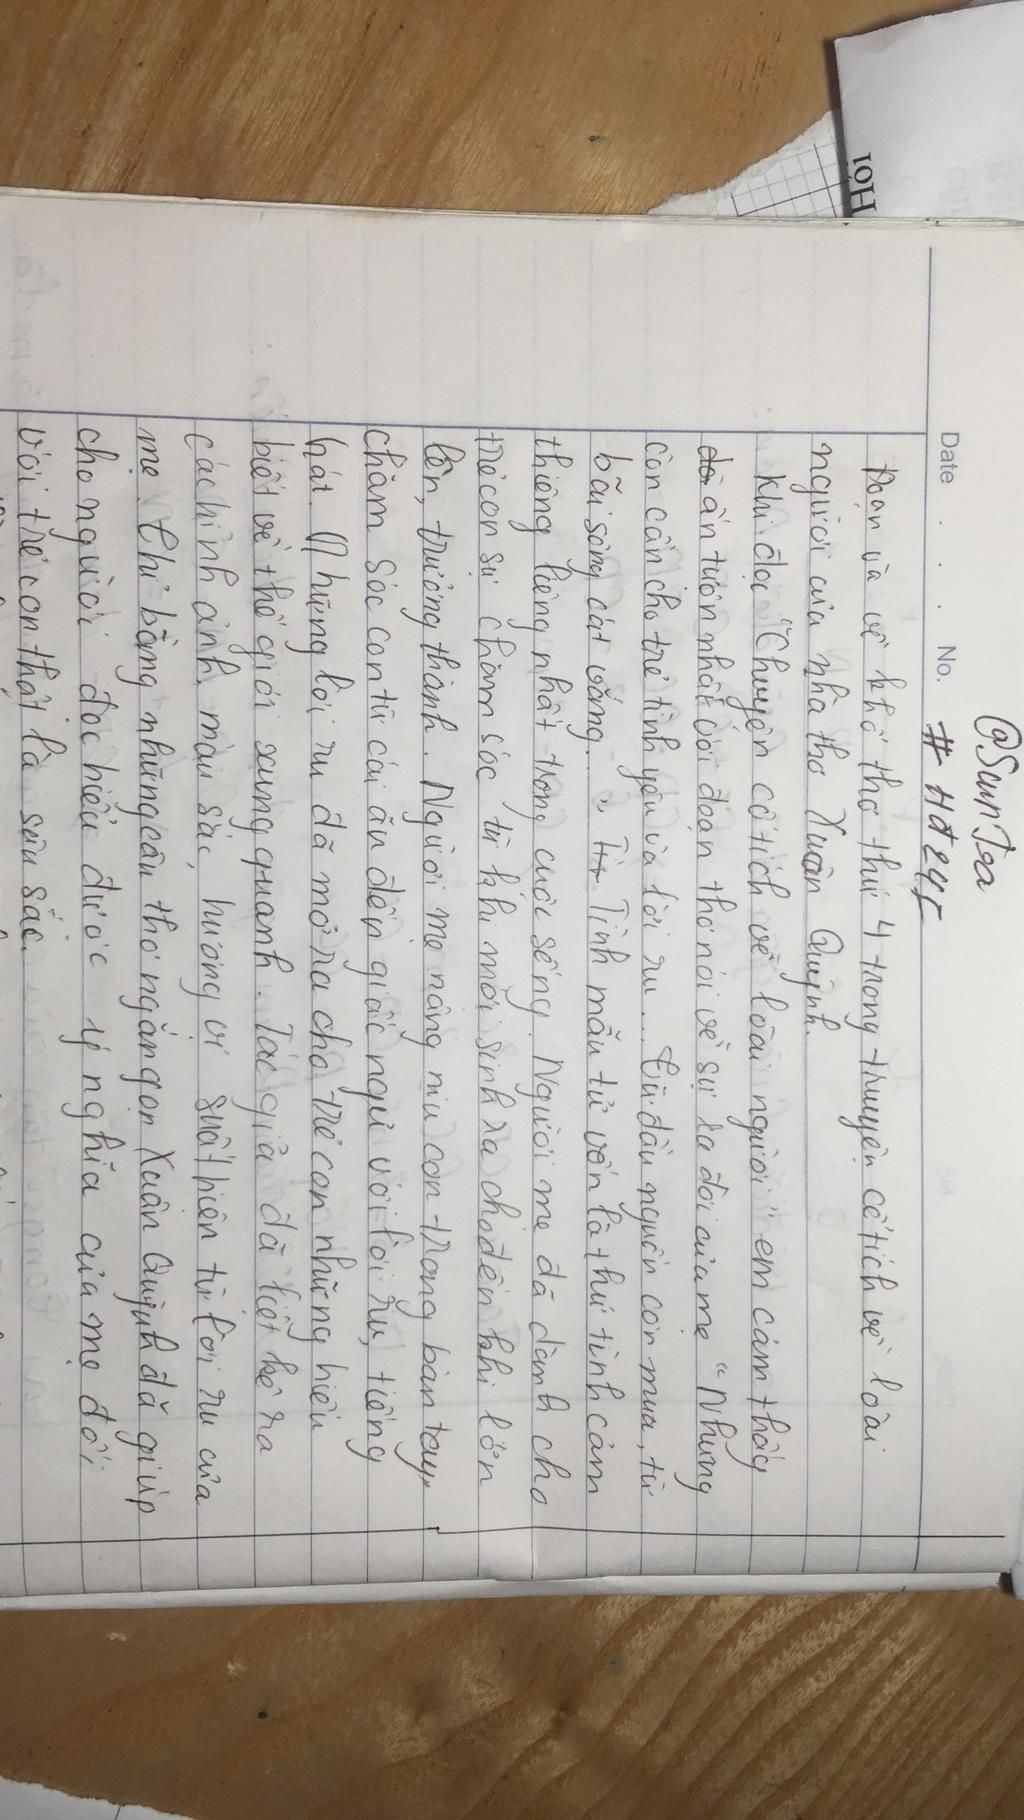 @SunTea
Date . . . No.
# Hđ245
Đoạn và về khổ thơ thứ 4 trong truyện cổ tích về loài
người của nhà thơ Xuân Quỳnh.
Khi đọc "Chuyện cổ tích về loài người" em cảm thấy
ấn tướn nhất với đoạn thơ nói về sự ra đời của mẹ "Nhưng
còn cần cho trẻ tình yêu và lời ru... Từ đâu nguồn cơn mưa, từ
bãi sông cát vắng..." Tình mẫu tử vốn là thứ tình cảm
thiêng liêng nhất trong cuộc sống. Người mẹ đã dành cho
trẻ con sự chăm sóc từ khi mới sinh ra cho đến khi lớn
lên, trưởng thành. Người mẹ nâng niu con trong bàn tay,
chăm sóc con từ cái ăn đến giấc ngủ với lời ru, tiếng
hát. Những lời ru đã mở ra cho trẻ con những hiểu
biết về thế giới xung quanh. Tác giả đã liệt kê ra
các hình ảnh, màu sắc, hương vị suất hiện từ lời ru của
mẹ. Chỉ bằng những câu thơ ngắn gọn Xuân Quỳnh đã giúp
cho người đọc hiểu được ý nghĩa của mẹ đối
với trẻ con thật là sâu sắc.
Hỏi